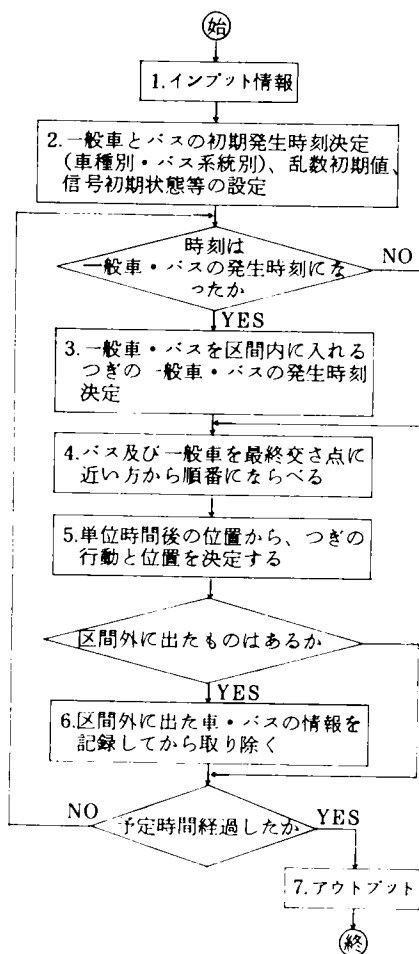 始
1.インプット情報
2.一般車とバスの初期発生時刻決定
(車種別・バス系統別)、乱数初期値、
信号初期状態等の設定
時刻は
一般車・バスの発生時刻にな
ったか
NO
YES
3.一般車・バスを区間内に入れる
つぎの一般車・バスの発生時刻
決定
4.バス及び一般車を最終交さ点に
近い方から順番にならべる
5.単位時間後の位置から、つぎの
行動と位置を決定する
区間外に出たものはあるか
YES
6.区間外に出た車・バスの情報を
記録してから取り除く
NO
予定時間経過したか
YES
7.アウトプット
終